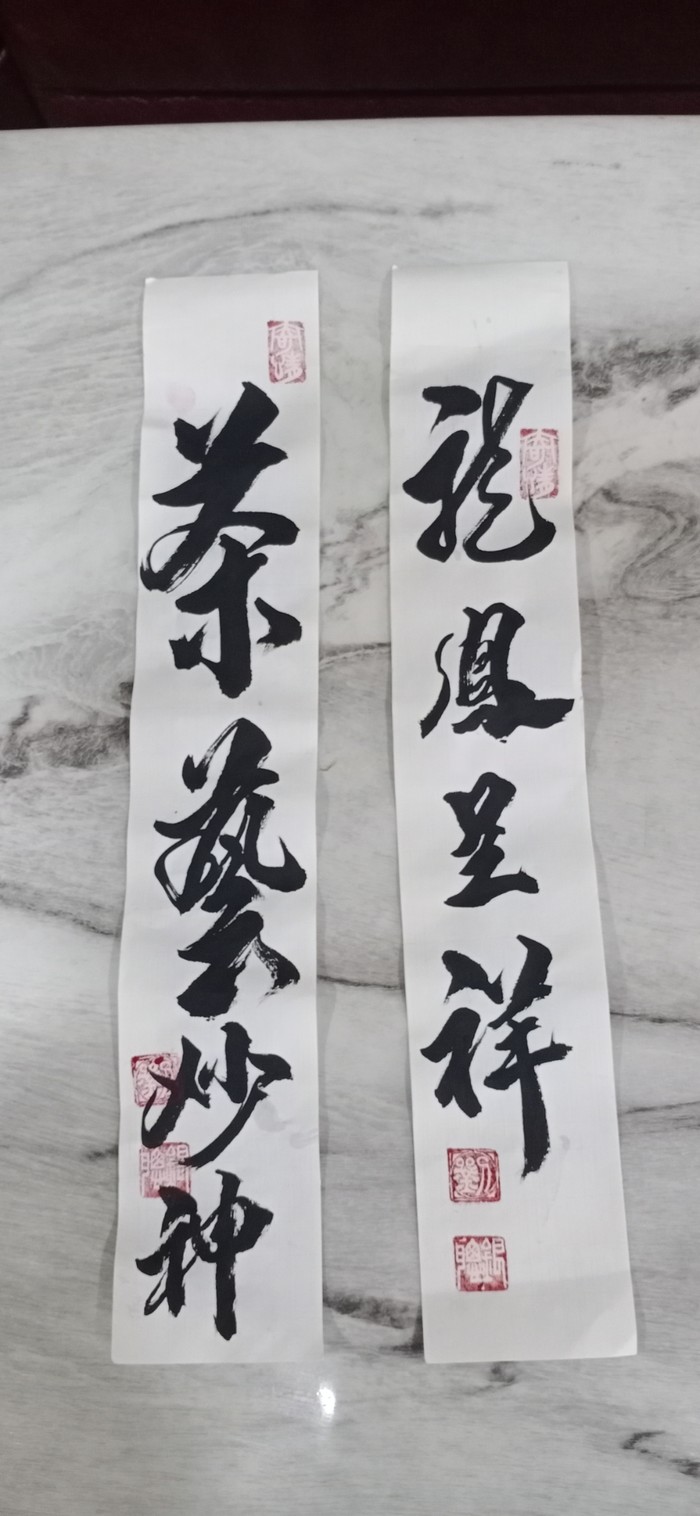 龍鳳呈祥
茶藝妙神